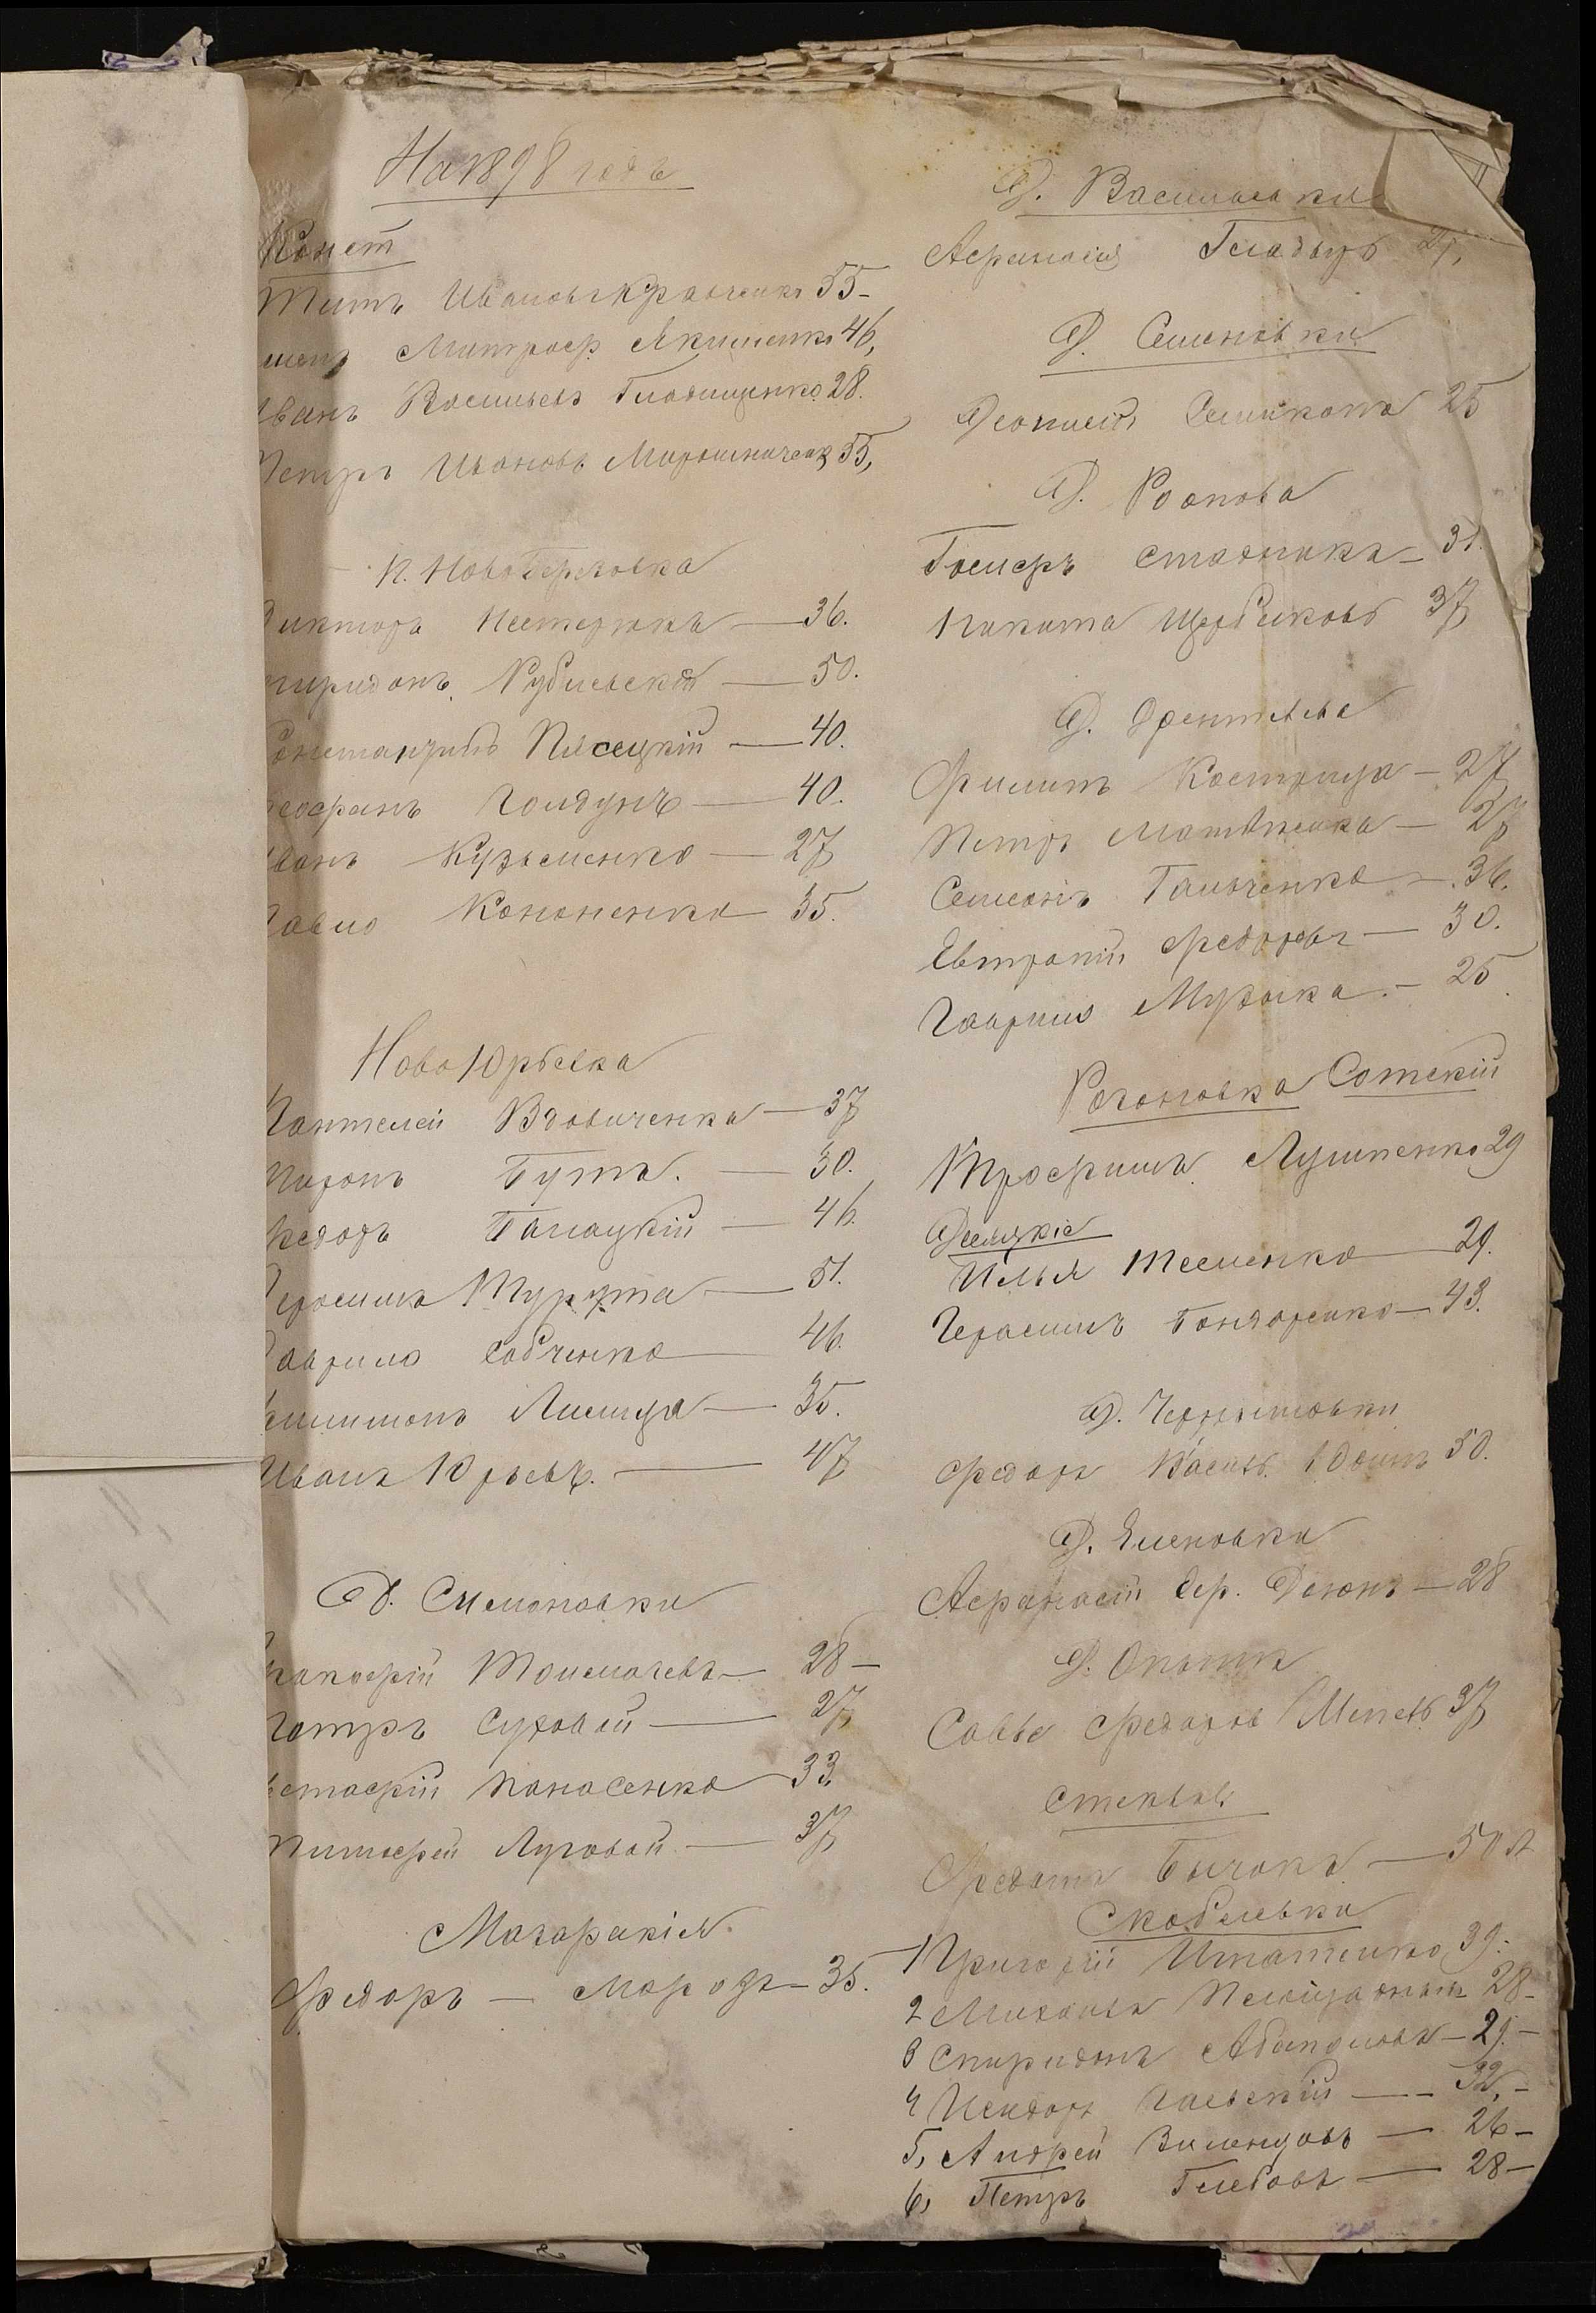 На 1898 годъ
Титъ Ивановъ Кравченко 55 –
Митроф. Якименко 46,
Иванъ Васильевъ Гладищенко 28.
Петръ Ивановъ Мирошниченко 55,
п. Ново Березовка
Викторъ Нестерюкъ — 36.
Спиридонъ Кубильскій — 50.
Константинъ Пясецкій — 40.
Феофанъ Голдунъ — 40.
Иванъ Кузьменко — 27
Павло Кононенко — 35.
Ново Юрьевка
Пантелей Вдовиченко — 37
Миронъ Бутъ. — 30.
Федоръ Галацкій — 46.
Герасимъ Шурута — 51.
Гаврило Собченко — 46.
Филимонъ Лисица — 35.
Иванъ Юрьевъ. — 47
Д. Симоновки
Прокофій Толмачевъ — 28 –
Петръ Суховой — 27,
Евстафій Панасенко – 33,
Тимофей Луговой — 37,
Магаракія
Федоръ — Морозъ – 35.
Д. Васильевки
Афанасій Гладырь
Д. Семеновки
Деонисій 25
Д. Роопова
Госифъ Стадникъ – 31.
Никита Щербаковъ 37,
Д. Арентьева
Филипъ Кострица – 27
Петръ Матвѣенко – 27
Семенъ Гальченко – 36.
Евтропій Федоровъ — 30.
Гаврило Музыка. – 25
Рогоновка Сотскій
Трофимъ Лушпенко 29
Десяцкіе
Илья Тесленко — 29.
Герасимъ Бондаренко — 43.
Д. Чернышовки
Федоръ Васил. Юдинъ 50.
Д. Еленовки
Афанасій Еф. Доюнъ – 28
Д. Опытъ
Савва Федоровъ 37,
Федотъ Бычокъ — 50 л
Скобелевки
1 Григорій Игнатенко 39.
2 Михаилъ 28 –
3 Спиридонъ Абакумовъ – 29. –
4 Исидоръ Гаевскій — 32, –
5, Андрей — 26 –
6, Петръ Глебовъ — 28 –